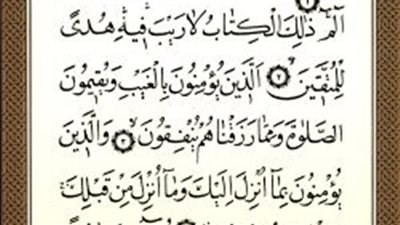 الٓمٓ ذٰلِكَ الْكِتَابُ لَا رَيْبَ فِيهِ هُدًى
لِلْمُتَّقِينَ ١ اَلَّذِينَ يُؤْمِنُونَ بِالْغَيْبِ وَيُقِيمُونَ
الصَّلٰوةَ وَمِمَّا رَزَقْنَاهُمْ يُنْفِقُونَ ٢ وَالَّذِينَ
يُؤْمِنُونَ بِمَٓا اُنْزِلَ اِلَيْكَ وَمَٓا اُنْزِلَ مِنْ قَبْلِكَ